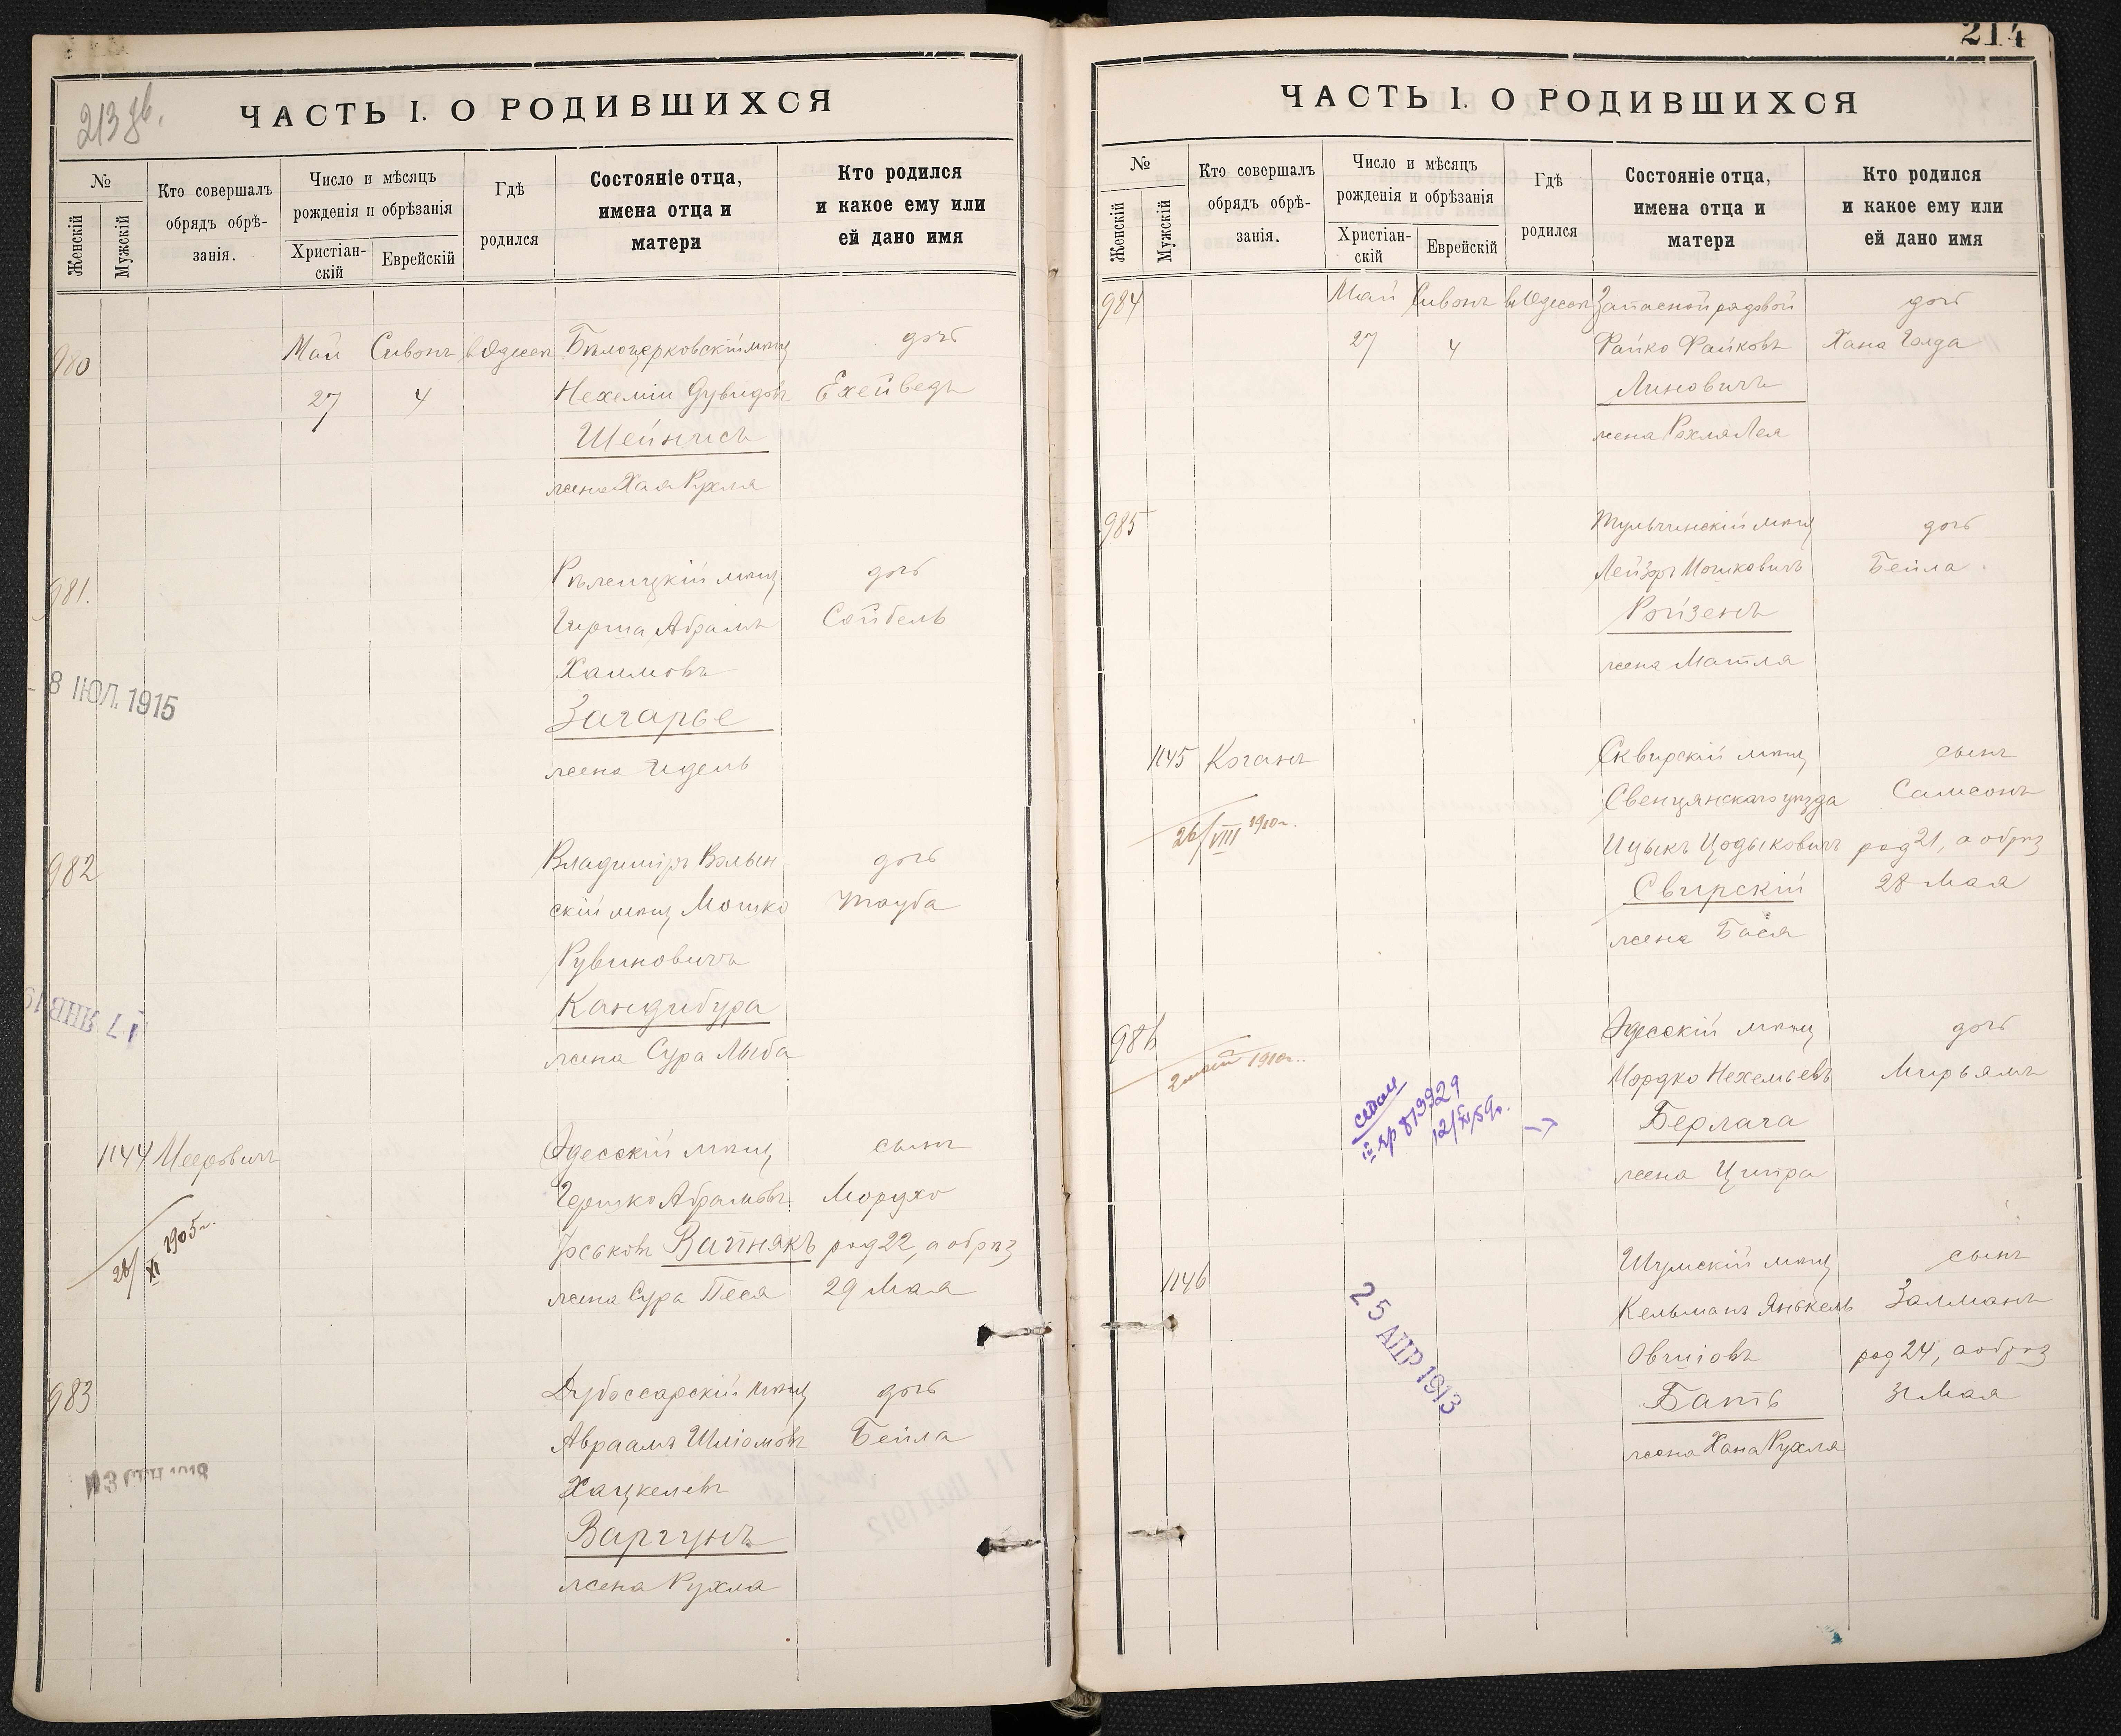 213 об.
ЧАСТЬ I. О РОДИВШИХСЯ
№
Женскій
Мужскій
Кто совершалъ
обрядъ обрѣ-
занія.
Число и мѣсяцъ
рожденія и обрѣзанія
Христіан-
скій
Еврейскій
Гдѣ
родился
Состояніе отца,
имена отца и
матери
Кто родился
и какое ему или
ей дано имя
980
Май Сивонъ в Одессѣ Бѣлоцерковскій мѣщ дочь
27 4 Нехемiи Дувидовъ Ехейведъ
Шейнисъ
жена Хая Рухля
981.
мѣщ дочь
Гирша Абрамъ Сойбель
Хаимовъ
8 ІЮЛ. 1915
Загарье
жена Идель
982
Владимиръ Волын- дочь
скій мѣщ Мошко Тауба
Рувиновичъ
17 ЯНВ 19
Кандибура
жена Сура Лыба
1144 Мееровичъ Одесскій мѣщ сынъ
Гершко Абрамовъ Мордко
28/XI 1905 г.
Іоськовъ Вапнякъ род 22, а обрѣз
жена Сура Песя 29 Мая
983
Дубоссарскій мѣщ дочь
Авраамъ Шліомовъ Бейла
Хацкелевъ
Варгунъ
жена Рухла
214
ЧАСТЬ I. О РОДИВШИХСЯ
№
Женскій
Мужскій
Кто совершалъ
обрядъ обрѣ-
занія.
Число и мѣсяцъ
рожденія и обрѣзанія
Христіан-
скій
Еврейскій
Гдѣ
родился
Состояніе отца,
имена отца и
матери
Кто родился
и какое ему или
ей дано имя
984 Май Сивонъ в Одессѣ Запасной рядовой дочь
27 4 Файко Файковъ Хана Голда
Линовичъ
жена Рохля Лея
985 Тульчинскій мѣщ дочь
Лейзоръ Мошковичъ Бейла
Ройзенъ
жена Матля
1145 Коганъ Сквирскій мѣщ сынъ
Свенцянскаго уѣзда Самсонъ
26/VIII 1910 г.
Ицыкъ Цодыковичъ род 21, а обрѣз
Свирскій 28 Мая
жена Бася
986 Одесскій мѣщ дочь
2 мая 1910 г.
Мордко Нехемьевъ Мирьямъ
813929
12/XI 59 г.
Берлага
жена Ципра
1146 Шумскій мѣщ сынъ
Кельманъ Янкель Залманъ
25 АПР 1913
Овшіовъ род 24, а обрѣз
Бать 31 Мая
жена Хана Рухля